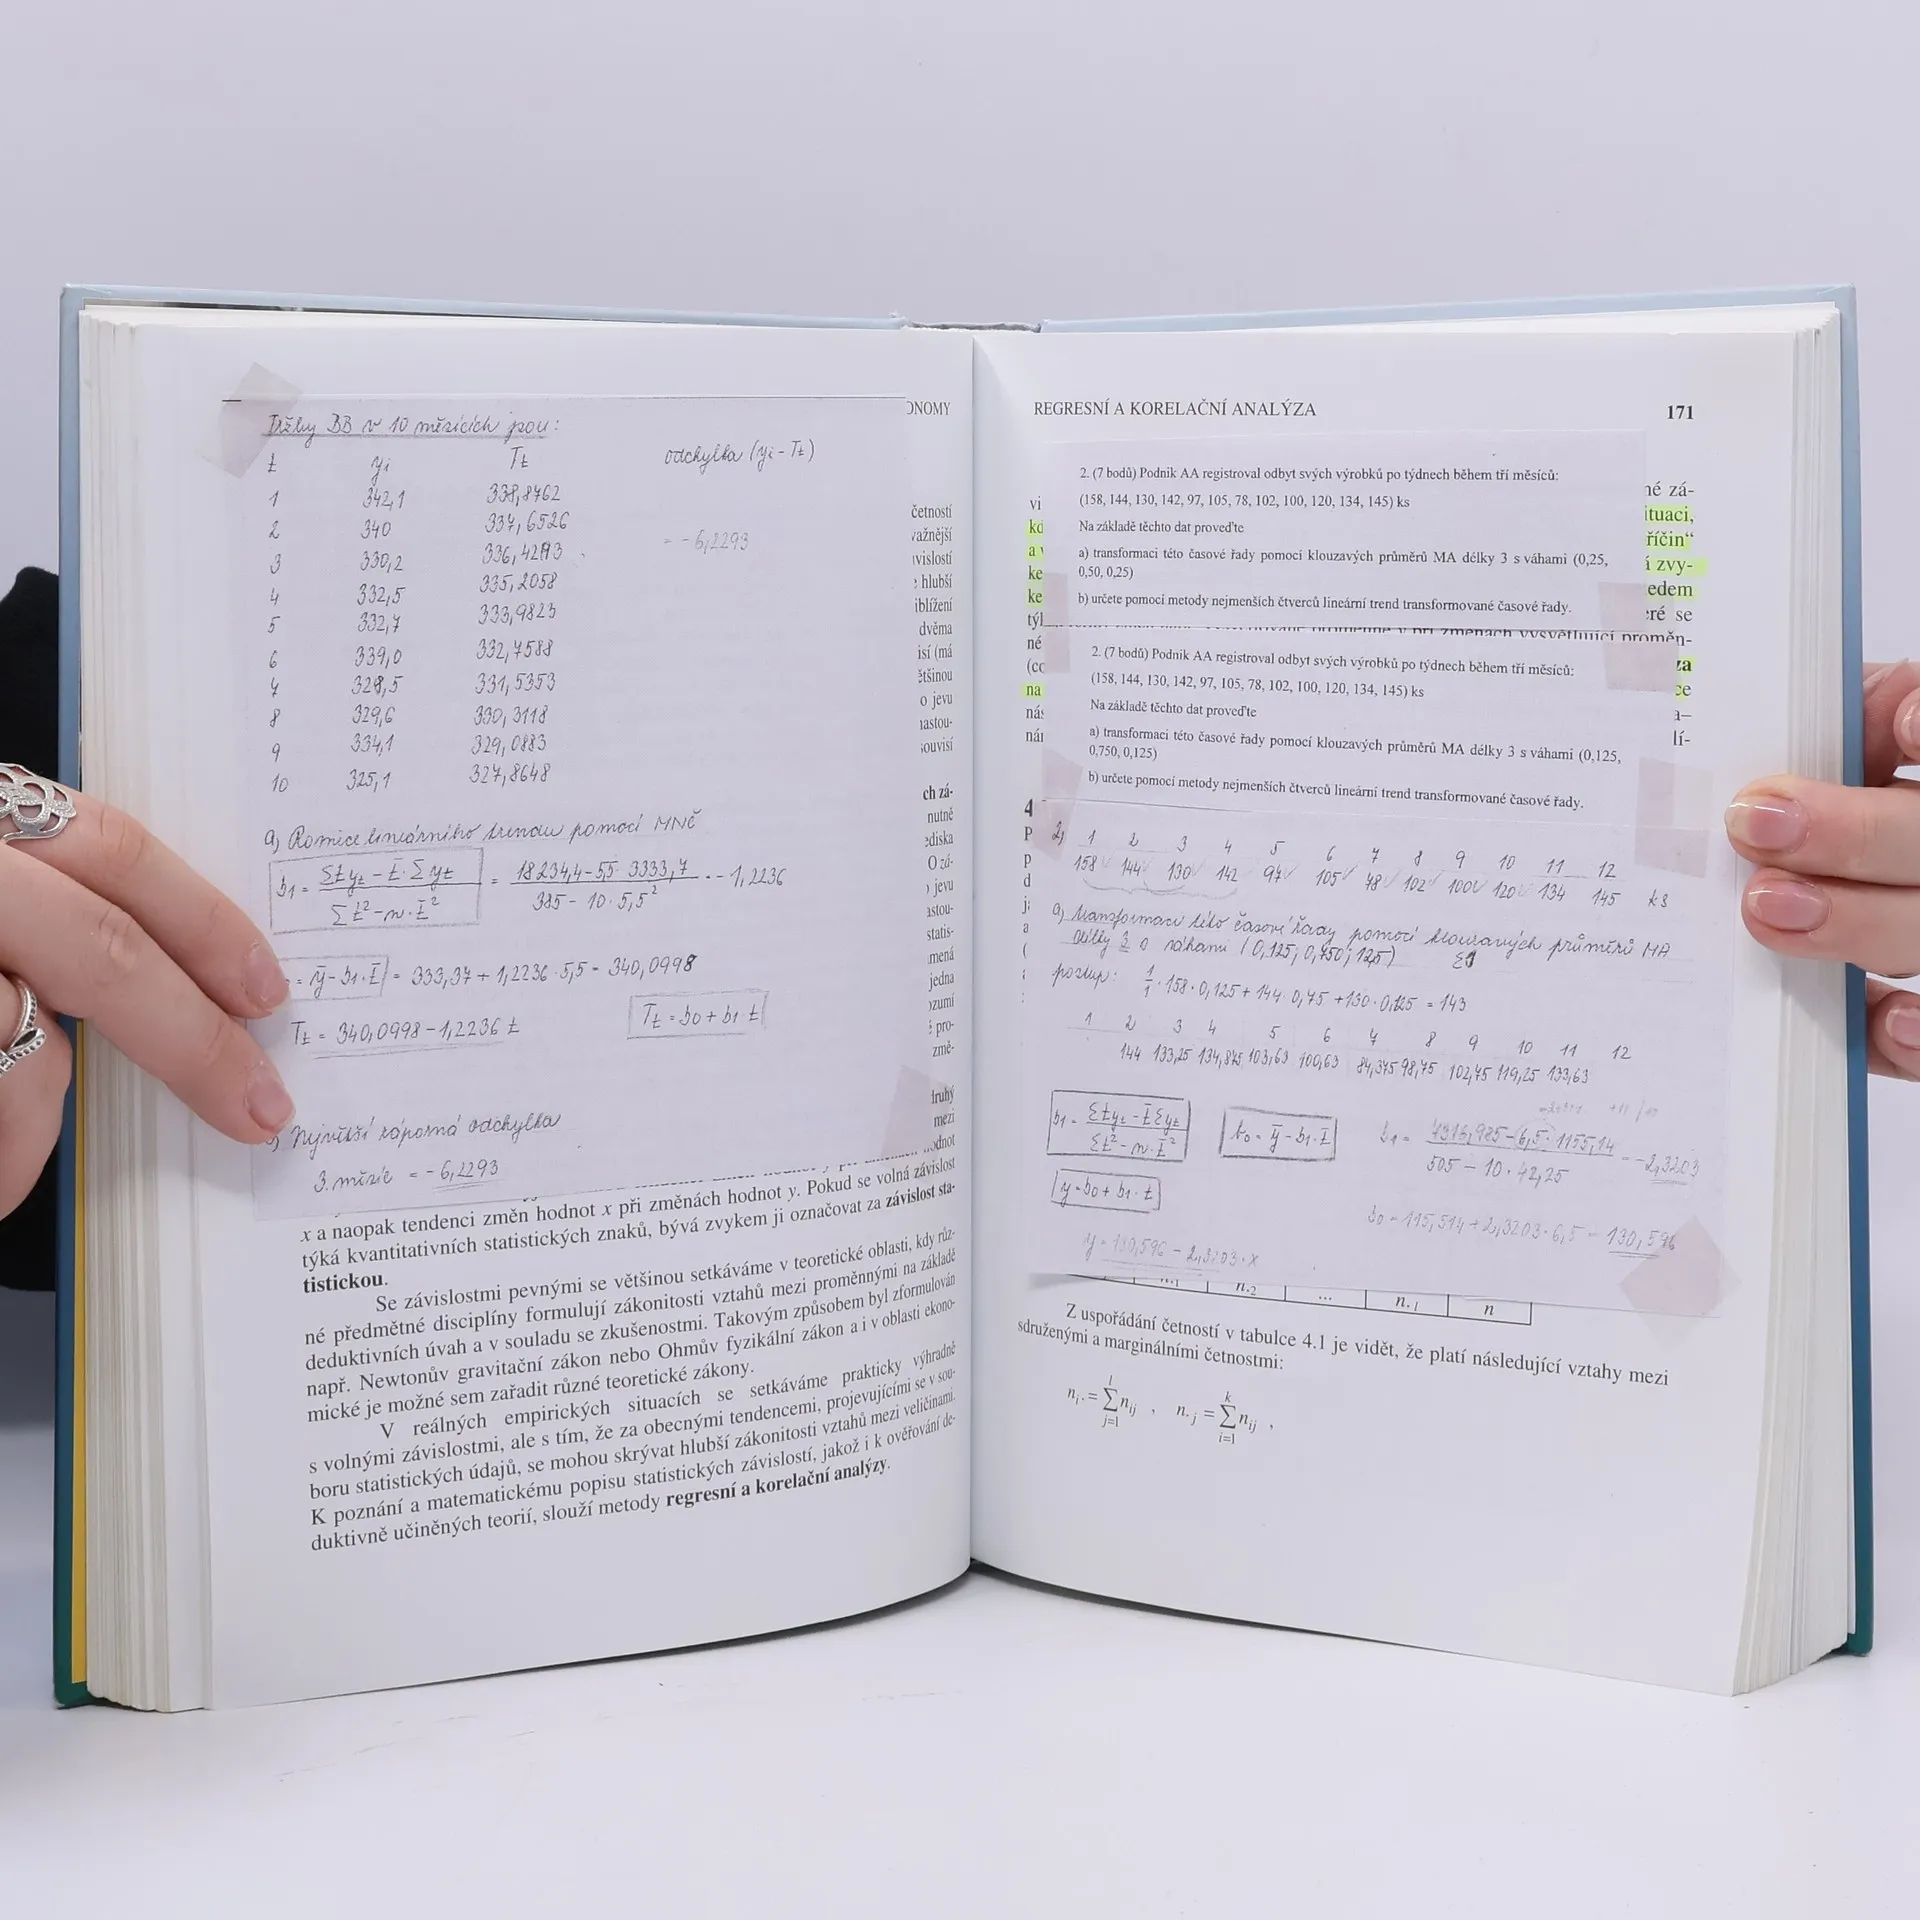 ONOMY
Tržby BB v 10 měsících jsou:
t yi Tt odchylka (yi - Tt)
1 342,1 338,8762
2 340 337,6526
3 330,2 336,4293 = -6,2293
4 332,5 335,2058
5 332,7 333,9823
6 339,0 332,7588
7 328,5 331,5353
8 329,6 330,3118
9 334,1 329,0883
10 325,1 327,8648
a, Rovnice lineárního trendu pomocí MNČ
b1 = Σtyt - t̄·Σyt / Σt² - n·t̄² = 18234,4 - 5,5·3333,7 / 385 - 10·5,5² = -1,2236
= ȳ - b1·t̄ = 333,37 + 1,2236·5,5 = 340,0998
Tt = 340,0998 - 1,2236 t
Tt = b0 + b1·t
Největší záporná odchylka
3. měsíc = -6,2293
četností
važnější
ivislostí
hlubší
iblížení
dvěma
isí (má
ětšinou
o jevu
nastou-
souvisí
ch zá-
nutně
ediska
O zá-
jevu
astou-
statis-
mená
jedna
ozumí
pro-
změ-
druhý
mezi
x a naopak tendenci změn hodnot x při změnách hodnot y. Pokud se volná závislost
týká kvantitativních statistických znaků, bývá zvykem ji označovat za závislost sta-
tistickou.
Se závislostmi pevnými se většinou setkáváme v teoretické oblasti, kdy různ-
né předmětné disciplíny formulují zákonitosti vztahů mezi proměnnými na základě
deduktivních úvah a v souladu se zkušenostmi. Takovým způsobem byl zformulován
např. Newtonův gravitační zákon nebo Ohmův fyzikální zákon a i v oblasti ekono-
mické je možné sem zařadit různé teoretické zákony.
V reálných empirických situacích se setkáváme prakticky výhradně
s volnými závislostmi, ale s tím, že za obecnými tendencemi, projevujícími se v sou-
boru statistických údajů, se mohou skrývat hlubší zákonitosti vztahů mezi veličinami.
K poznání a matematickému popisu statistických závislostí, jakož i k ověřování de-
duktivně učiněných teorií, slouží metody regresní a korelační analýzy.
REGRESNÍ A KORELAČNÍ ANALÝZA 171
2. (7 bodů) Podnik AA registroval odbyt svých výrobků po týdnech během tří měsíců:
(158, 144, 130, 142, 97, 105, 78, 102, 100, 120, 134, 145) ks
Na základě těchto dat proveďte
a) transformaci této časové řady pomocí klouzavých průměrů MA délky 3 s váhami (0,25,
0,50, 0,25)
b) určete pomocí metody nejmenších čtverců lineární trend transformované časové řady.
né zá-
ituaci,
říčin“
zvy-
edem
eré se
proměnné y při změnách vysvětlující proměn-
2. (7 bodů) Podnik AA registroval odbyt svých výrobků po týdnech během tří měsíců:
(158, 144, 130, 142, 97, 105, 78, 102, 100, 120, 134, 145) ks
Na základě těchto dat proveďte
a) transformaci této časové řady pomocí klouzavých průměrů MA délky 3 s váhami (0,125,
0,750, 0,125)
b) určete pomocí metody nejmenších čtverců lineární trend transformované časové řady.
2, 1 2 3 4 5 6 7 8 9 10 11 12
158 144 130 142 97 105 78 102 100 120 134 145 ks
a, transformaci této časové řady pomocí klouzavých průměrů MA
délky 3 s váhami (0,125; 0,750; 125)
postup: 1/1·158·0,125 + 144·0,75 + 130·0,125 = 143
1 2 3 4 5 6 7 8 9 10 11 12
144 133,25 134,875 103,63 100,63 84,375 98,75 102,75 119,25 133,63
b1 = Σtyt - t̄Σyt / Σt² - n·t̄²
b0 = ȳ - b1·t̄
b1 = 7316,985 - (6,5·1155,14 / 505 - 10·42,25 = -2,3203
y = b0 + b1·t
b0 = 115,514 + 2,3203·6,5 = 130,596
y = 130,596 - 2,3203·x
n.1 n.2 ... n.l n
Z uspořádání četností v tabulce 4.1 je vidět, že platí následující vztahy mezi
sdruženými a marginálními četnostmi:
n i. = Σ n ij , n .j = Σ n ij ,